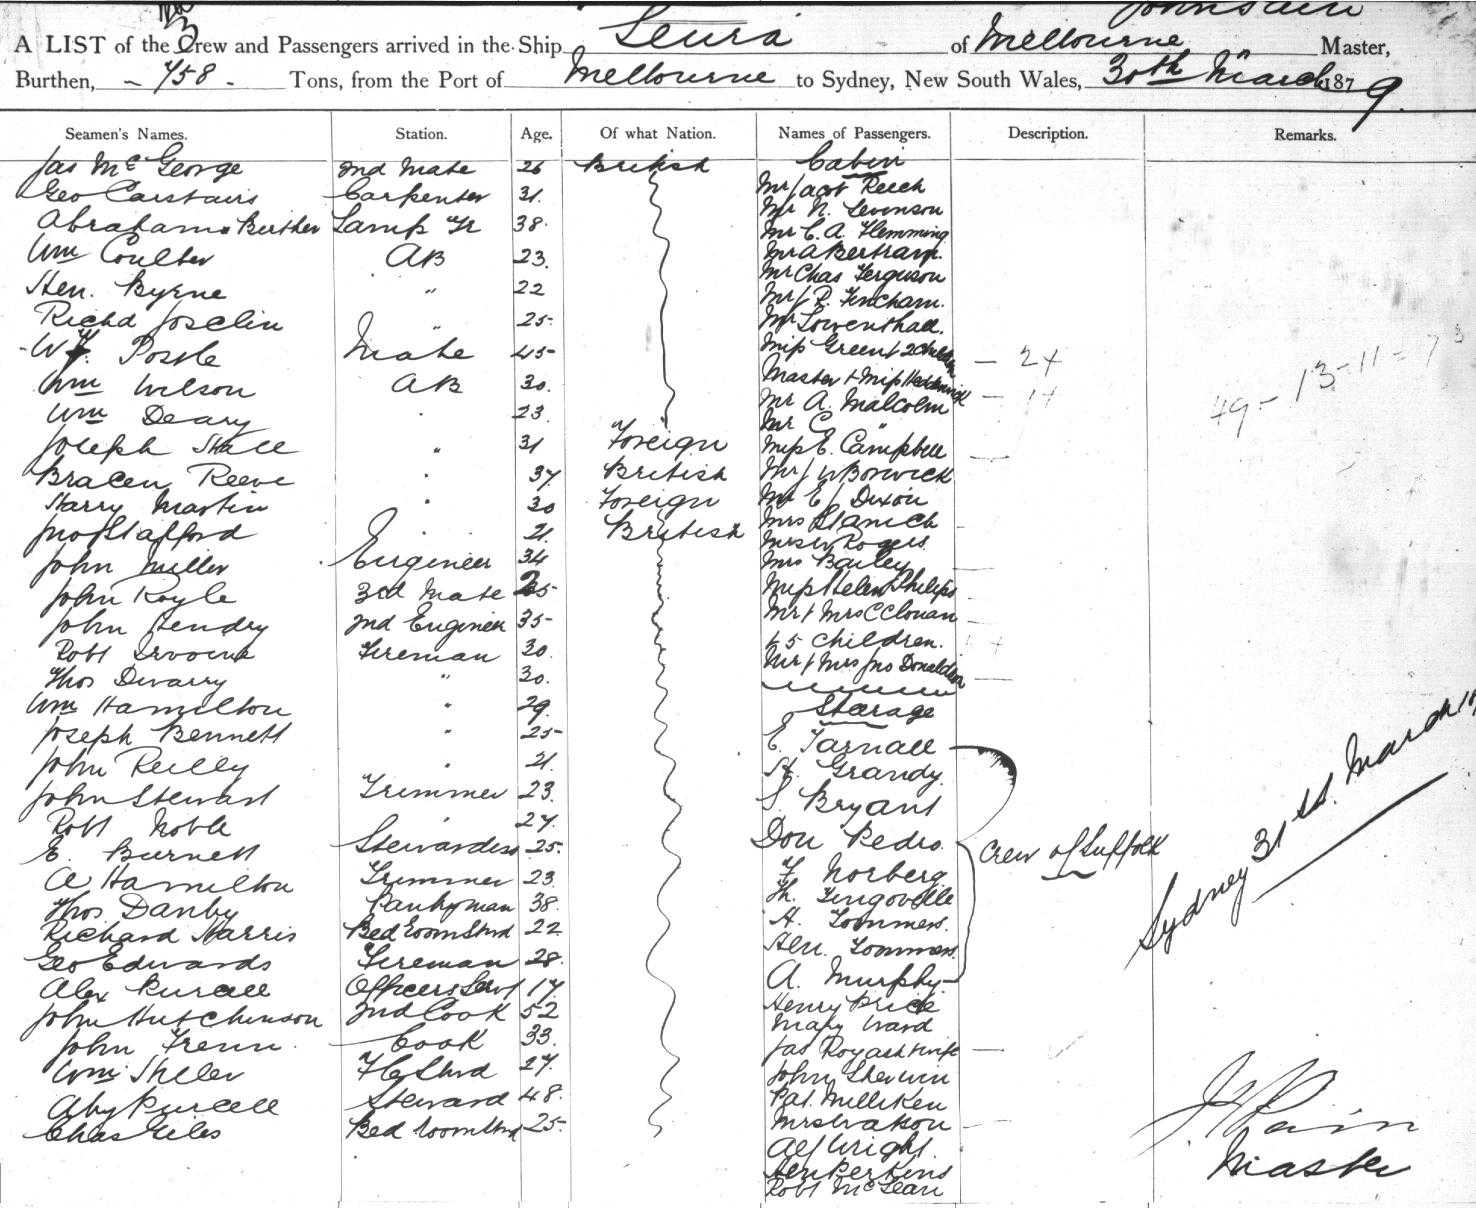 A LIST of the Crew and Passengers arrived in the Ship Leura of Melbourne Master,
Burthen, 758 Tons, from the Port of Melbourne to Sydney, New South Wales, 30th March 1879.
Seamen's Names. Station. Age. Of what Nation. Names of Passengers. Description. Remarks.
Jas McGeorge 2nd Mate 26 British
Geo Carstairs Carpenter 31.
Abraham Lamp Tr 38.
Wm Coulter AB 23.
Hen. Byrne " 22
Richd Joselin " 25
Postle Mate 45
Wm Wilson AB 30.
Wm Deary " 23.
Joseph Hall " 31 Foreign
Bracen Reeve " 37 British
Harry Martin " 30 Foreign
Jno Stafford " 21. British
John Miller Engineer 34
John Royle 3rd Mate
John Hendry 2nd Engineer 35
Robt Fireman 30.
Thos Devarry " 30.
Wm Hamilton " 29.
Joseph Bennett " 25
John Reilly " 21.
John Stewart Trimmer 23.
Robt Noble " 27.
E. Burnett Stewardess 25.
A Hamilton Trimmer 23.
Thos Danby Pantryman 38.
Richard Harris Bed Room Stwd 22
Geo Edwards Fireman 28.
Alex Purcell Officers Servt 17
John Hutchinson 2nd Cook 52
John Cook 33.
Wm Stwd 27.
Purcell Steward 48.
Chas Giles Bed room Stwd 25
Cabin
Mr Jacob Reich
Mr N. Levinson
Mr C. A. Flemming
Mr A Bertram.
Mr Chas Ferguson
Mr J. R. Fincham.
Mr Lowenthall.
Miss Green + 2 children — 2+
Master + Miss
Mr A. Malcolm — 1+
Mr C. "
Miss E. Campbell
Mr J W Borwick
Mr E J Dixon
Mrs Stanich
Mrs W Rogers.
Mrs Bailey
Miss Helen Philips
Mr + Mrs C Clouan
+ 5 children.
Mr + Mrs Jno Donaldson
Steerage
E. Tarnall
H. Grandy.
S. Bryant
Don Pedro.
F. Norberg
Th. Tingovelle
H. Tommers.
Hen. Tommers.
A. Murphy
Crew of Suffolk
Henry Price
Mary Ward
Jas Royash + wife
John Sherwin
Pat. Milliken
Mrs Watson
Alf Wright.
Hen Perkins
Robt McLean
49 - 13 - 11 = 73
Sydney 31st. March
Master